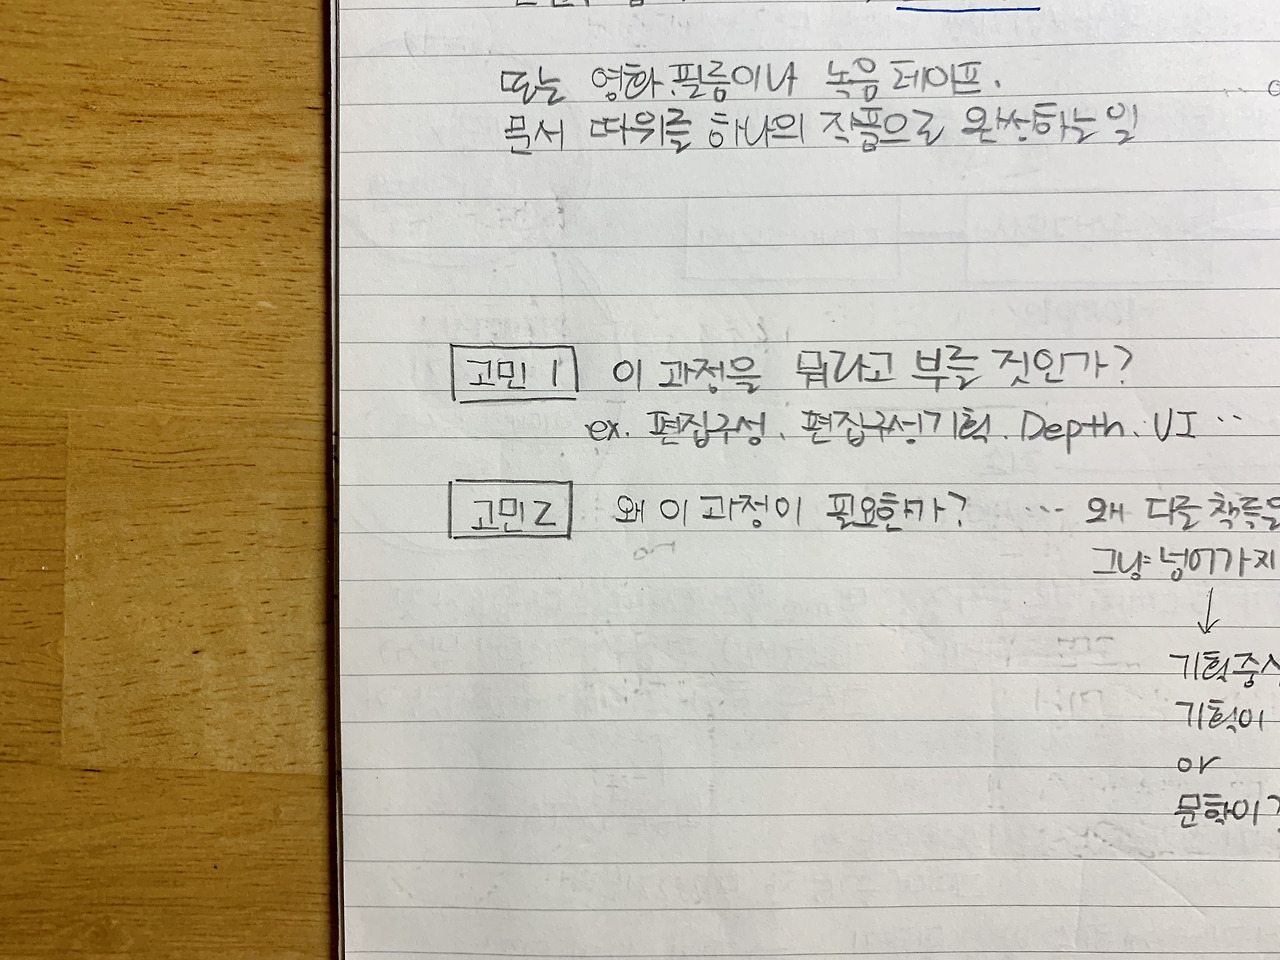 또는 영화.필름이나 녹음 테이프.
문서 따위를 하나의 작품으로 완성하는 일
고민 1 이 과정을 뭐라고 부를 것인가?
ex. 편집구성. 편집구성기획. Depth. UI ··
고민2 왜 이 과정이 필요한가? ··· 왜 다들 책률을
그냥 넘어가지
↓
기획중심
기획이
or
문학이